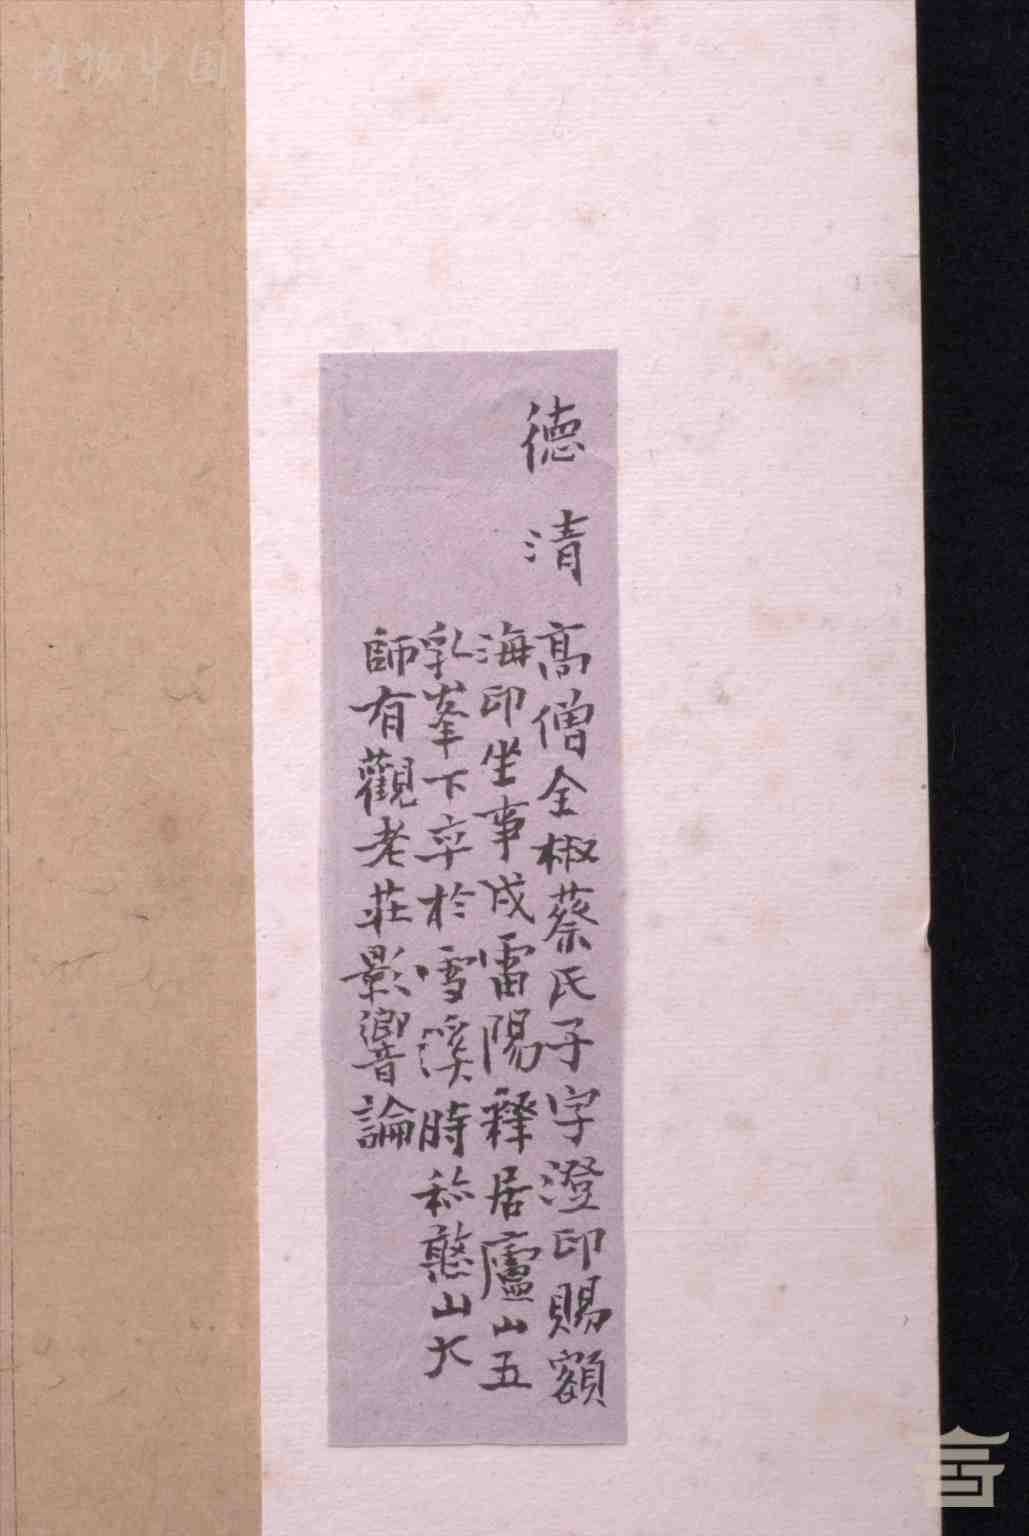 德清
高僧全椒蔡氏子字澄印賜額
海印坐事戍雷陽釋居廬山五
乳峯下卒於雪溪時称憨山大
師有觀老莊影響論